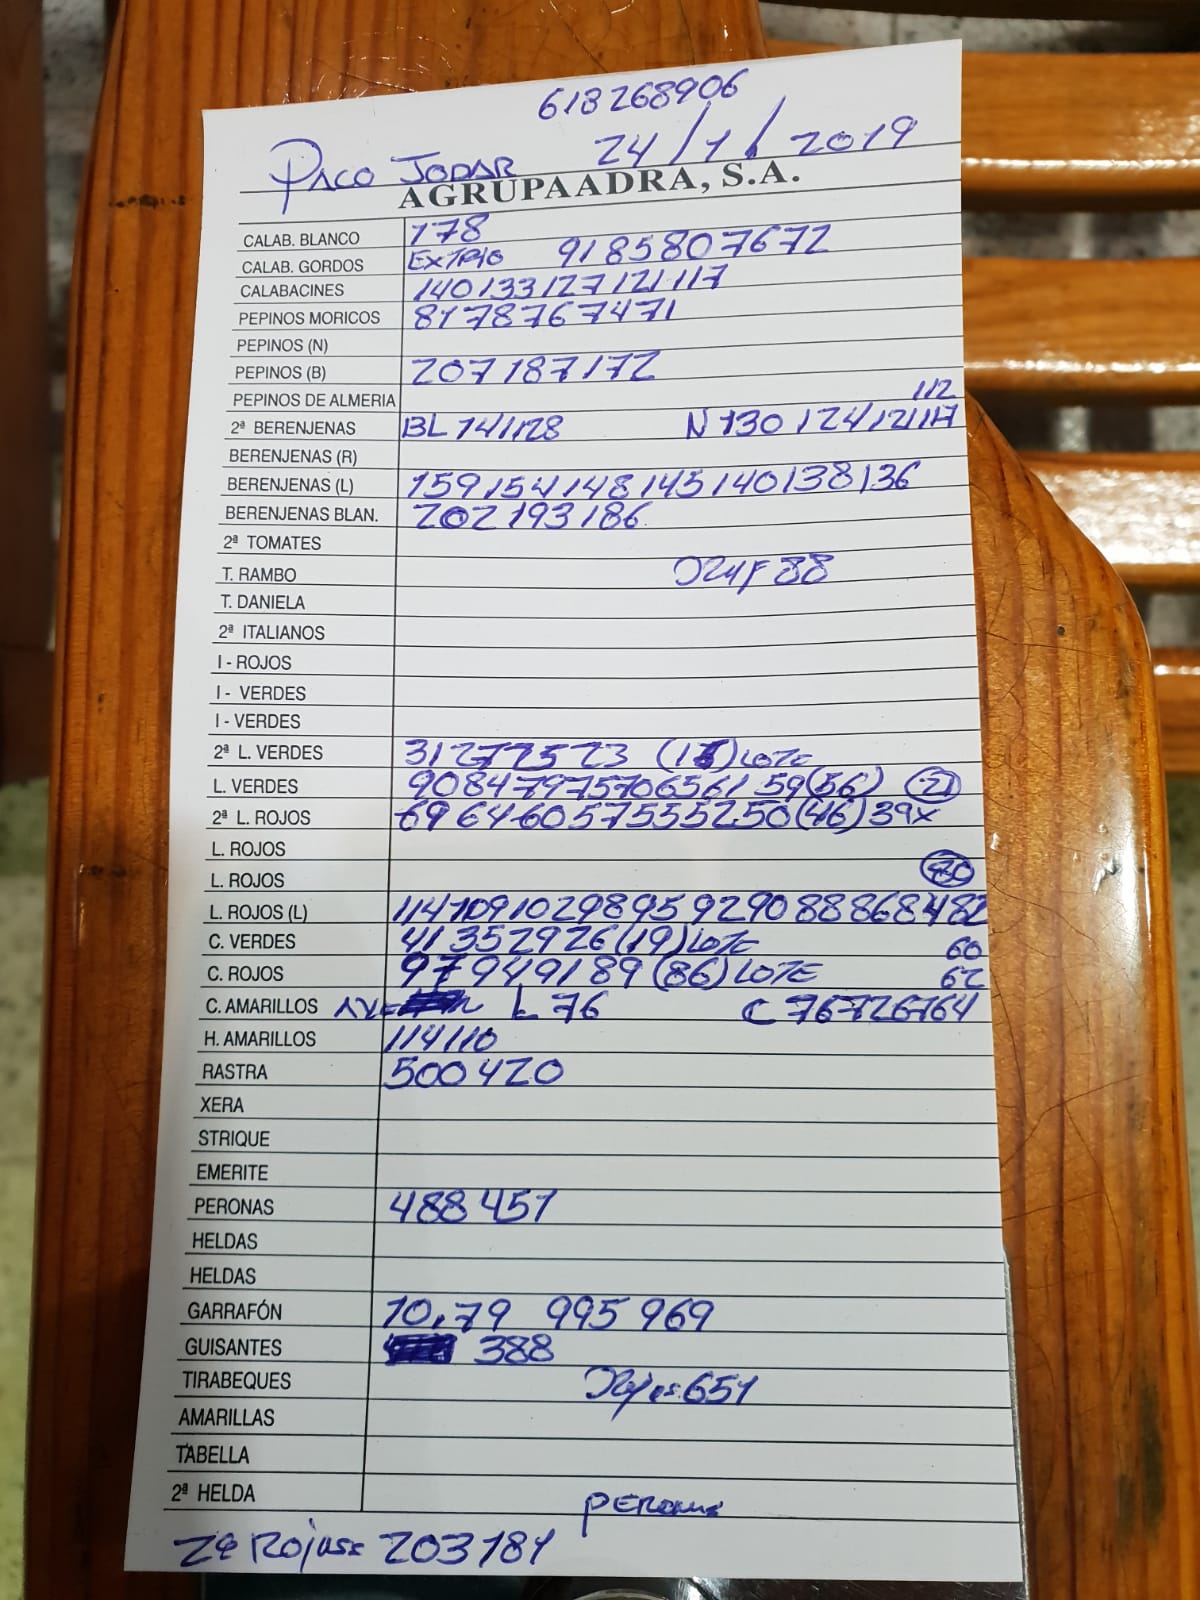 618268906
PACO JODAR 24/1/2019
AGRUPAADRA, S.A.
CALAB. BLANCO 178
CALAB. GORDOS 91 85 80 76 72
CALABACINES 140 133 127 121 117
PEPINOS MORICOS 81 78 76 74 71
PEPINOS (N)
PEPINOS (B) 207 187 172
PEPINOS DE ALMERIA 112
2ª BERENJENAS BL 141 128 N 130 124 121 117
BERENJENAS (R)
BERENJENAS (L) 159 154 148 145 140 138 136
BERENJENAS BLAN. 202 193 186
2ª TOMATES
T. RAMBO 88
T. DANIELA
2ª ITALIANOS
I - ROJOS
I - VERDES
I - VERDES
2ª L. VERDES 31 27 25 23 LOTE
L. VERDES 90 84 79 75 70 65 61 59 (56)
2ª L. ROJOS 69 64 60 57 55 52 50 (46) 39x
L. ROJOS
L. ROJOS
L. ROJOS (L) 114 109 102 98 95 92 90 88 86 84 82
C. VERDES 41 35 29 26 (19) LOTE 60
C. ROJOS 97 94 91 89 (86) LOTE 62
C. AMARILLOS L 76 C 76 72 67 64
H. AMARILLOS 114 110
RASTRA 500 420
XERA
STRIQUE
EMERITE
PERONAS 488 451
HELDAS
HELDAS
GARRAFÓN 10,79 995 969
GUISANTES 388
TIRABEQUES 651
AMARILLAS
TABELLA
2ª HELDA
2ª Rojas 203 181